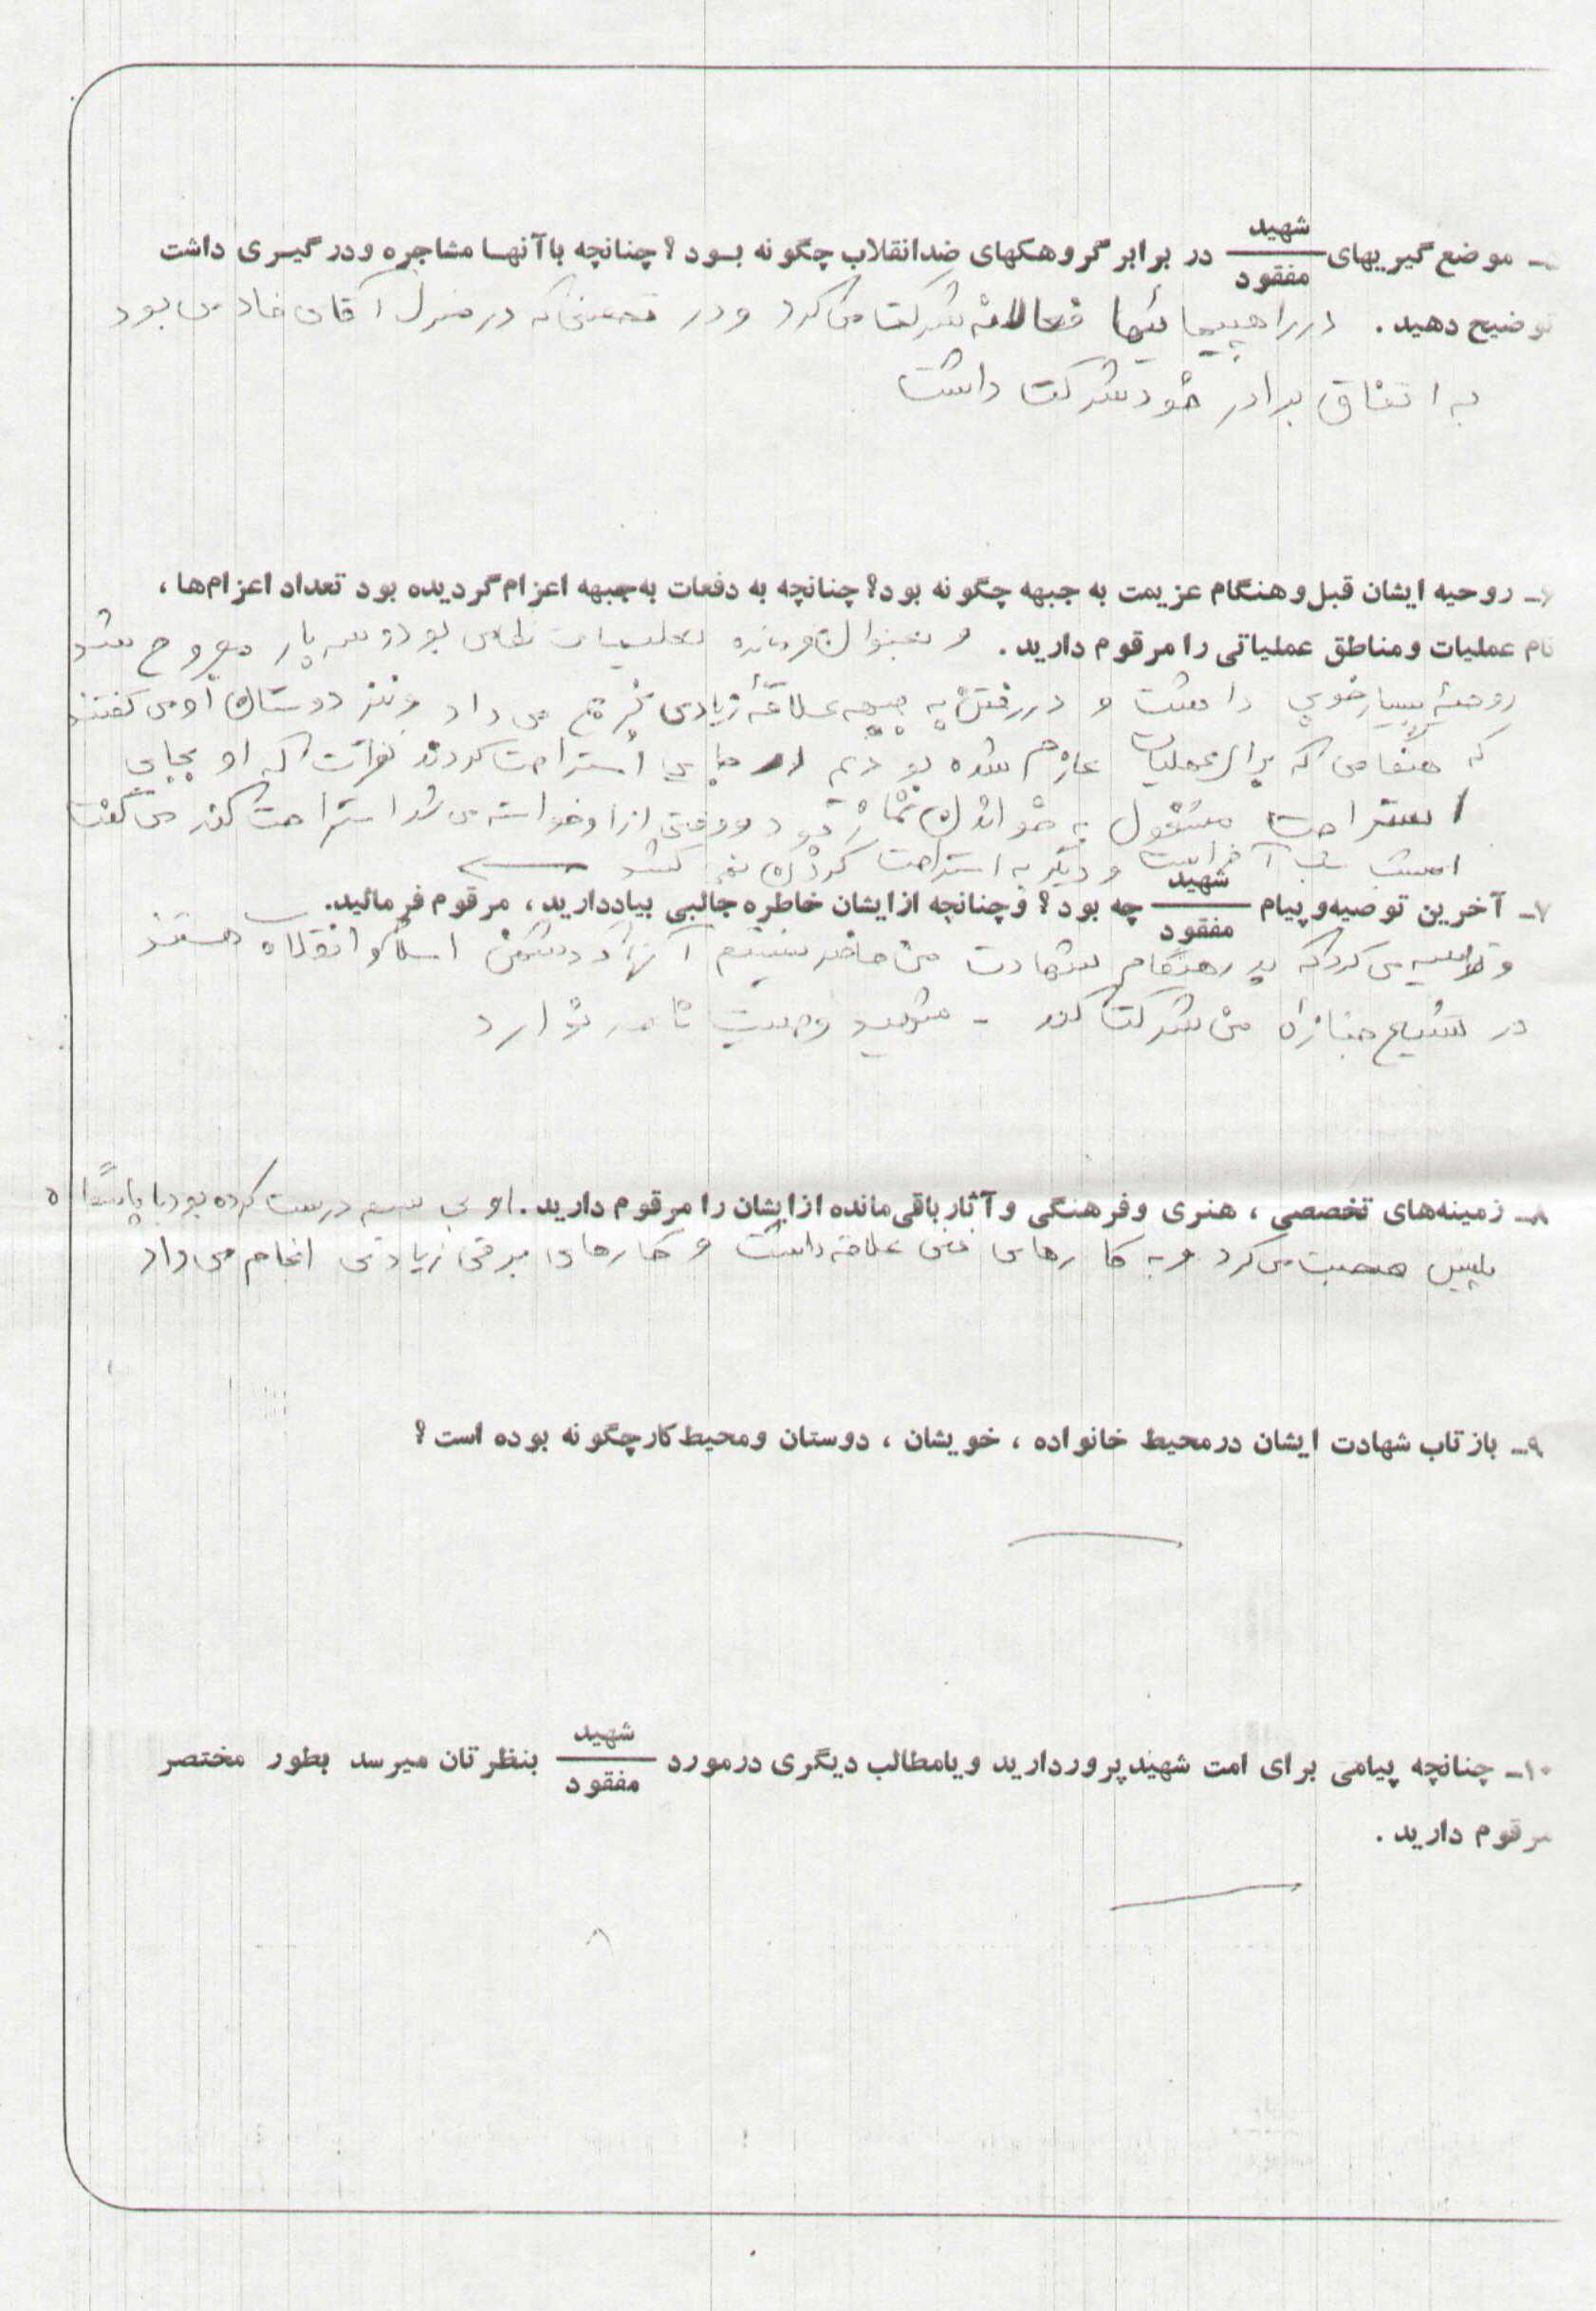 ۵ـ موضع گیریهای شهید / مفقود در برابر گروهکهای ضدانقلاب چگونه بود؟ چنانچه باآنها مشاجره ودرگیری داشت
توضیح دهید. در راهپیمائیها فعالانه شرکت می کرد و در که در منزل آقای خادمی بود
به اتفاق برادر خود شرکت داشت
۶ـ روحیه ایشان قبل وهنگام عزیمت به جبهه چگونه بود؟ چنانچه به دفعات به جبهه اعزام گردیده بود تعداد اعزام‌ها،
نام عملیات ومناطق عملیاتی را مرقوم دارید. و بعنوان فرمانده نظامی بود و سه بار مجروح شد
روحیه بسیار خوبی داشت و در رفتن به جبهه علاقه زیادی بخرج می داد و نیز دوستان او می گفتند
که هنگامی که برای عملیات عازم شده بودیم در جایی استراحت کردند که او بجای
استراحت مشغول به خواندن نماز بود و وقتی از او خواسته می شد استراحت کند می گفت
امشب شب آخر است و دیگر به استراحت کردن نمی کشد
۷ـ آخرین توصیه و پیام شهید / مفقود چه بود؟ وچنانچه ازایشان خاطره جالبی بیاددارید، مرقوم فرمائید.
و توصیه می کرد که در هنگام شهادت من حاضر نیستم آنها که دشمن اسلام و انقلاب هستند
در تشییع جنازه من شرکت کنند - شهید وصیت نامه ندارد
۸ـ زمینه‌های تخصصی، هنری وفرهنگی وآثار باقی‌مانده ازایشان را مرقوم دارید. او بی سیم درست کرده بود با
پلیس صحبت می کرد و به کارهای فنی علاقه داشت و کارهای برقی زیادی انجام می داد
۹ـ بازتاب شهادت ایشان درمحیط خانواده، خویشان، دوستان ومحیط کارچگونه بوده است؟
۱۰ـ چنانچه پیامی برای امت شهیدپروردارید ویامطالب دیگری درمورد شهید / مفقود بنظرتان میرسد بطور مختصر
مرقوم دارید.